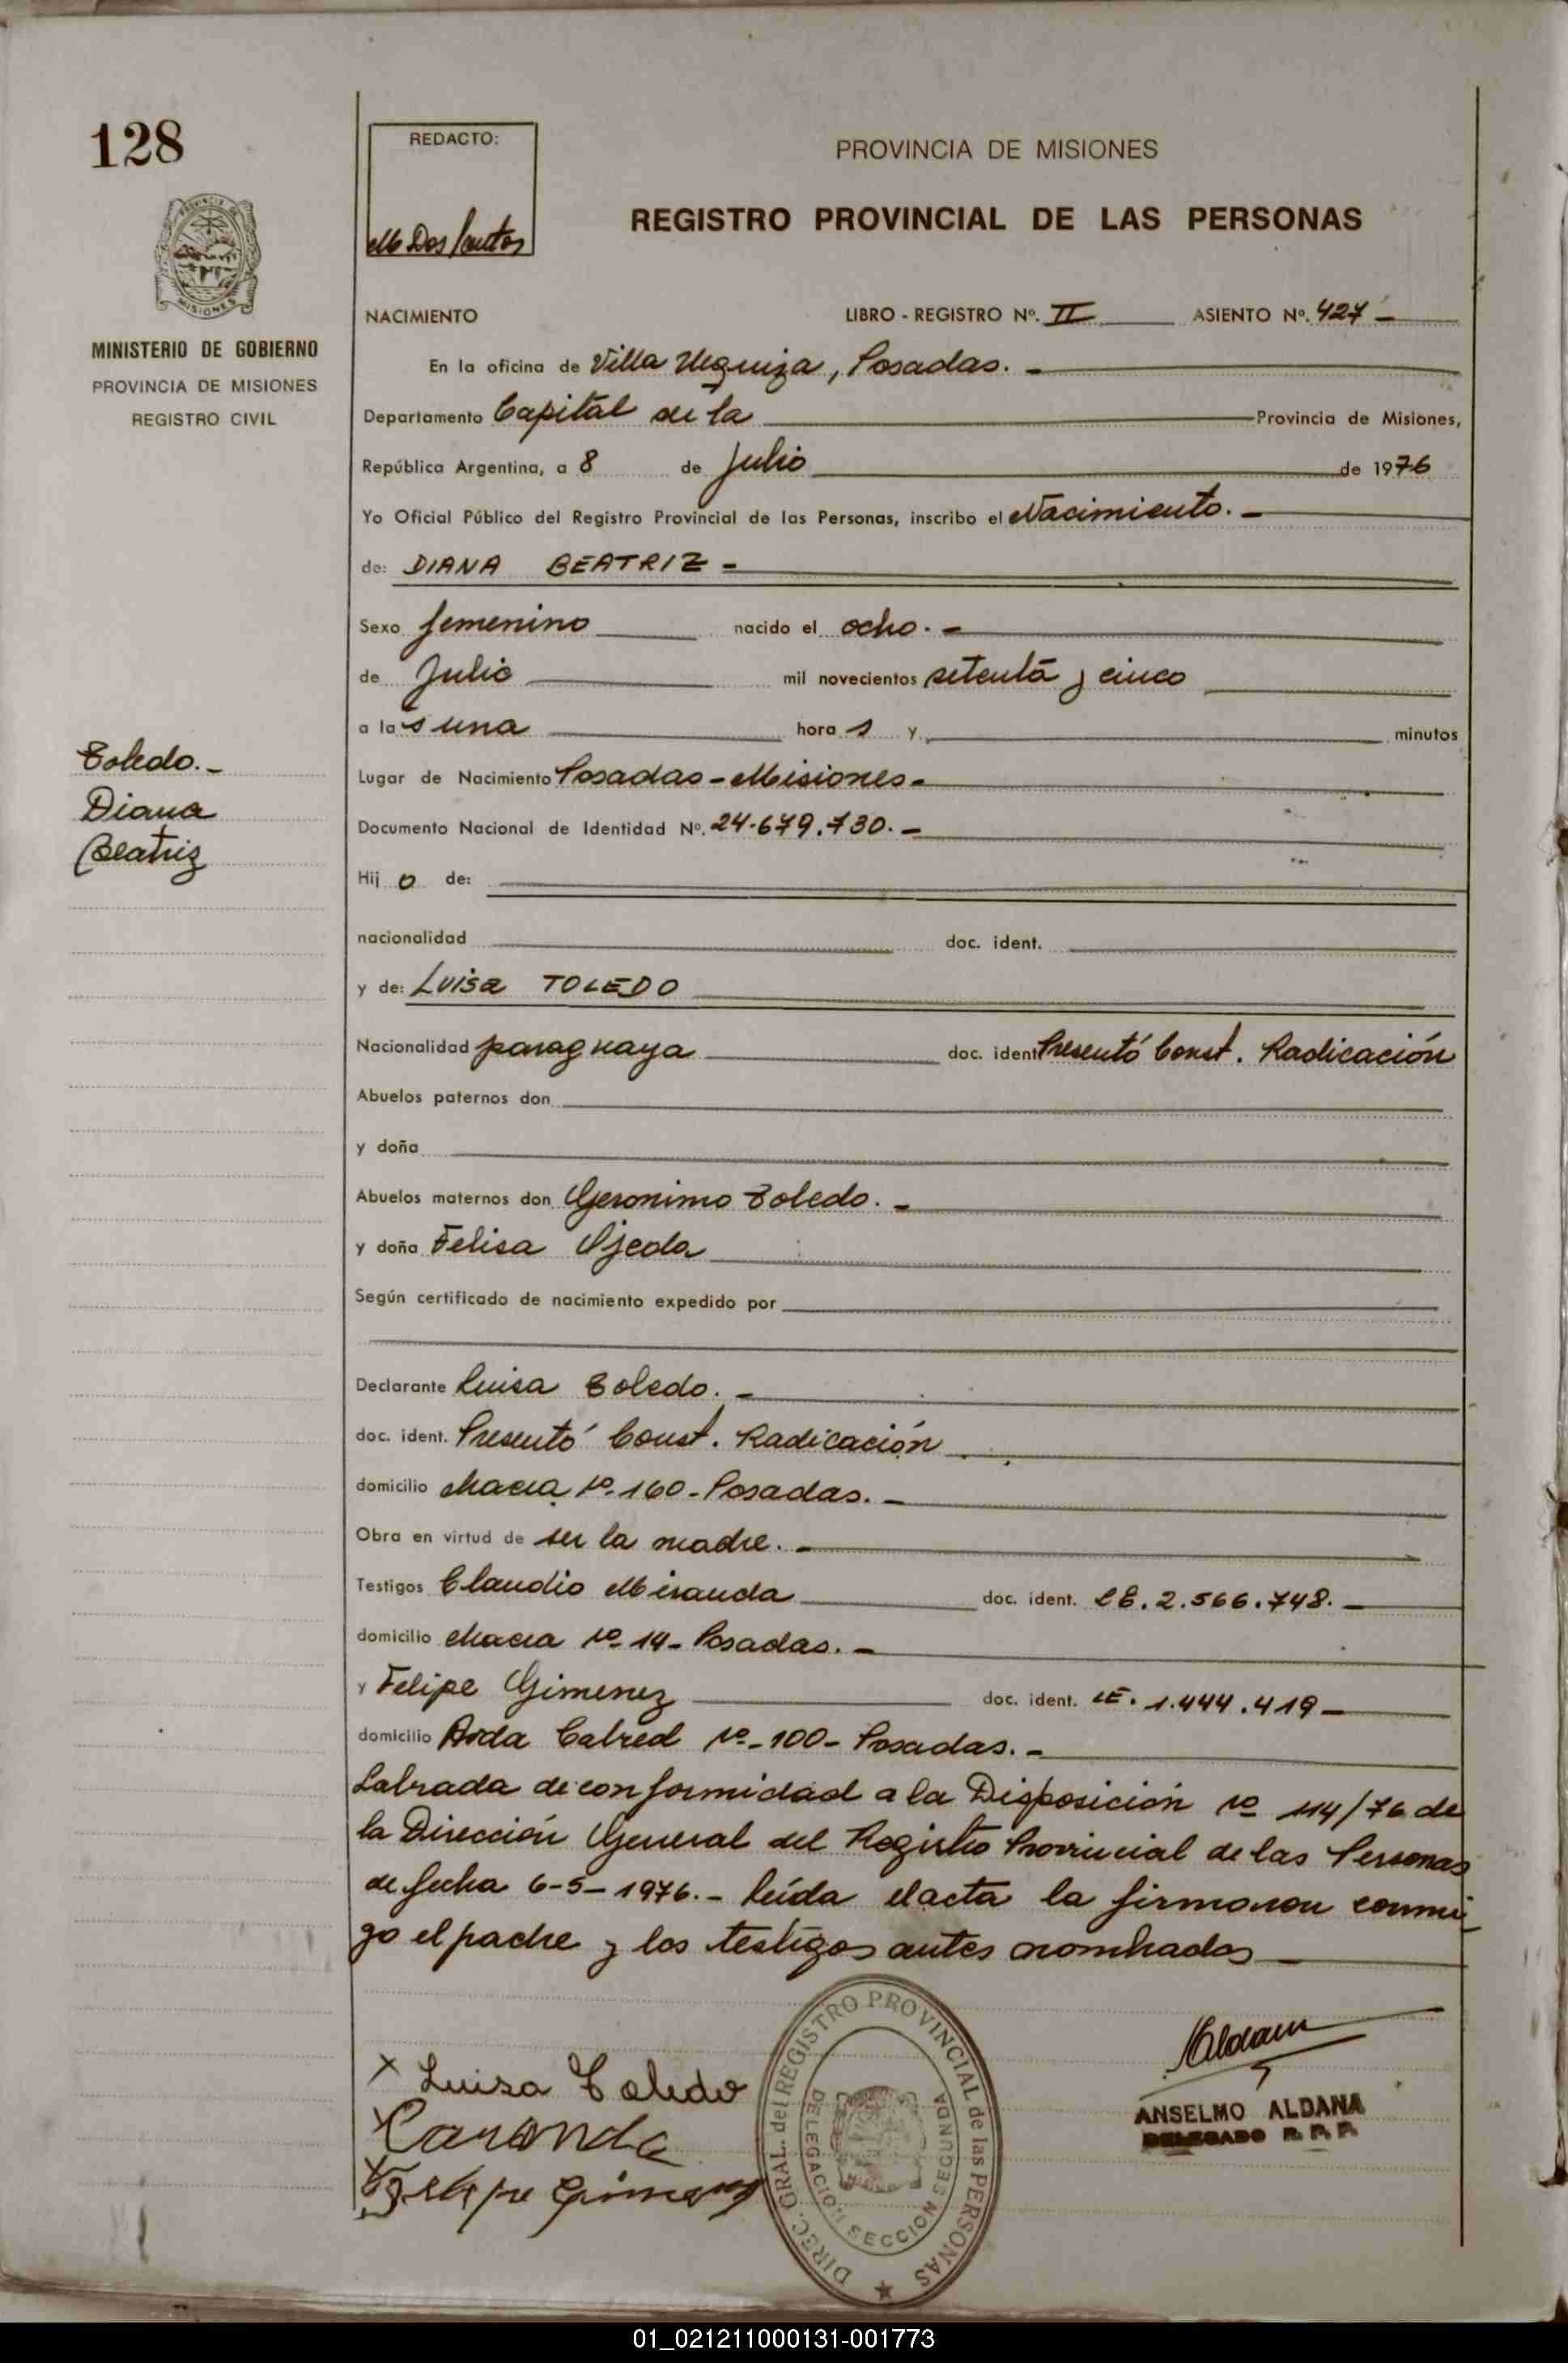 128
REDACTO:
M Dos Santos
PROVINCIA DE MISIONES
REGISTRO PROVINCIAL DE LAS PERSONAS
PROVINCIA DE
MISIONES
MINISTERIO DE GOBIERNO
PROVINCIA DE MISIONES
REGISTRO CIVIL
NACIMIENTO LIBRO - REGISTRO Nº. II ASIENTO Nº. 427 -
En la oficina de Villa Urquiza, Posadas. -
Departamento Capital de la Provincia de Misiones,
República Argentina, a 8 de Julio de 1976
Yo Oficial Público del Registro Provincial de las Personas, inscribo el Nacimiento. -
de: DIANA BEATRIZ -
Sexo femenino nacido el ocho. -
de Julio mil novecientos setenta y cinco
a las una hora s y minutos
Toledo. -
Diana
Beatriz
Lugar de Nacimiento Posadas - Misiones -
Documento Nacional de Identidad Nº. 24.679.730. -
Hij o de:
nacionalidad doc. ident.
y de: Luisa TOLEDO
Nacionalidad paraguaya doc. ident Presentó Const. Radicación
Abuelos paternos don
y doña
Abuelos maternos don Geronimo Toledo. -
y doña Felisa Ojeda
Según certificado de nacimiento expedido por
Declarante Luisa Toledo. -
doc. ident. Presentó Const. Radicación
domicilio Chacra Nº 160 - Posadas. -
Obra en virtud de ser la madre. -
Testigos Claudio Miranda doc. ident. 2.566.748. -
domicilio Chacra Nº 14 - Posadas. -
y Felipe Gimenez doc. ident. LE. 1.444.419 -
domicilio Avda Cabred Nº - 100 - Posadas. -
Labrada de conformidad a la Disposición Nº 114/76 de
la Dirección General del Registro Provincial de las Personas
de fecha 6-5-1976. - leída el acta la firmaron conmi
go el padre y los testigos antes nombrados
x Luisa Toledo
Felipe Gimenez
DIREC. GRAL. del REGISTRO PROVINCIAL de las PERSONAS
DELEGACION SECCION SEGUNDA
Aldana
ANSELMO ALDANA
DELEGADO R. P. P.
01_021211000131-001773